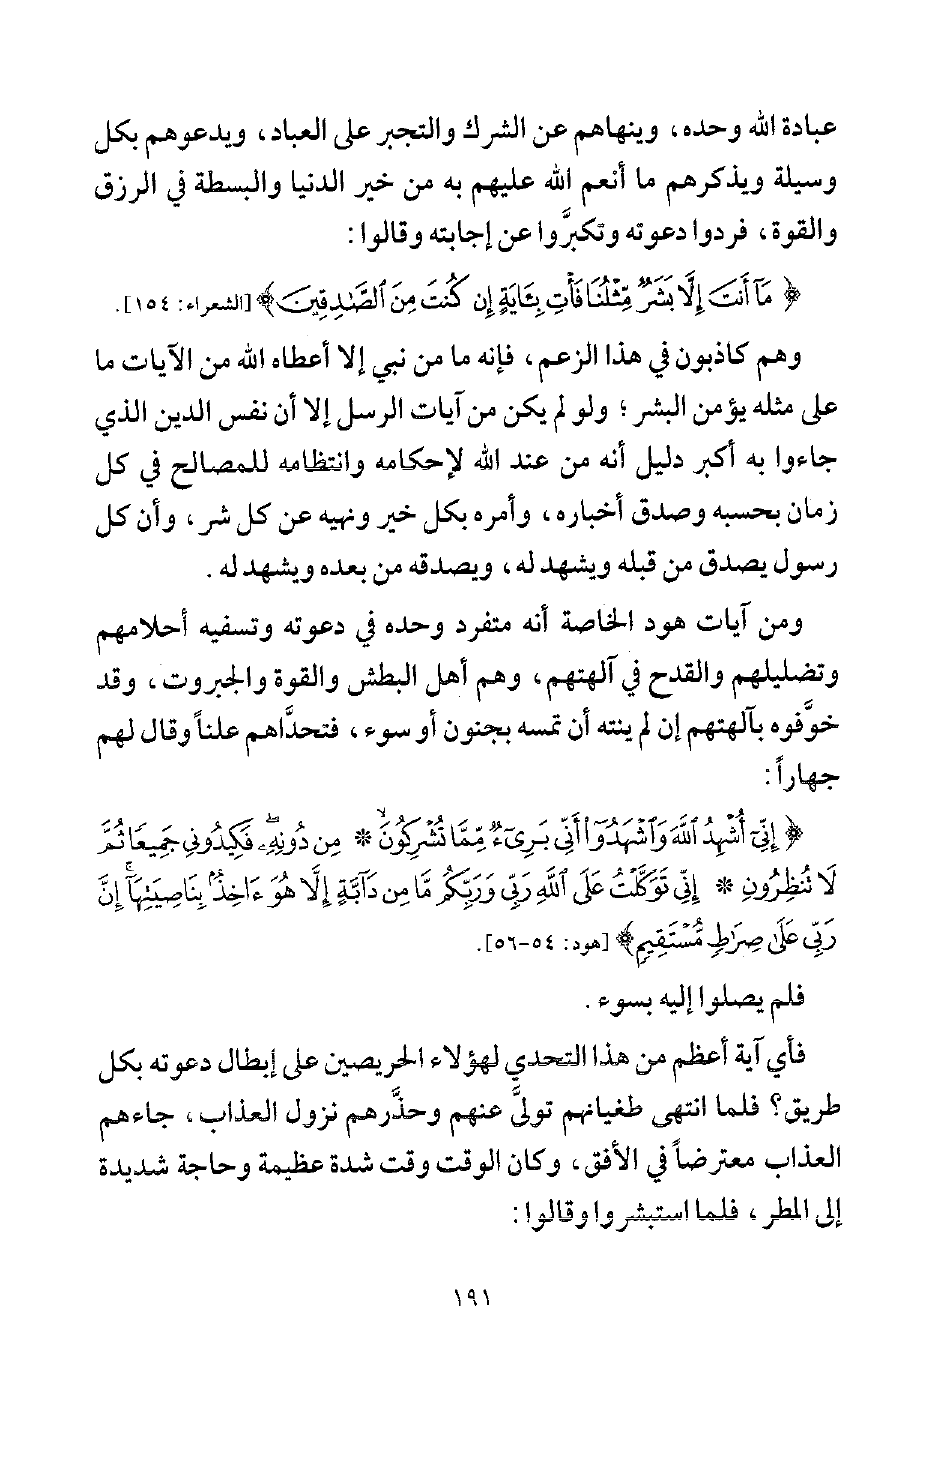 عبادة الله وحده، وينهاهم عن الشرك والتجبر على العباد، ويدعوهم بكل
وسيلة ويذكرهم ما أنعم الله عليهم به من خير الدنيا والبسطة في الرزق
والقوة، فردوا دعوته وتكبَّروا عن إجابته وقالوا:
﴿ مَآ أَنتَ إِلَّا بَشَرٌ مِّثْلُنَا فَأْتِ بِـَٔايَةٍ إِن كُنتَ مِنَ ٱلصَّٰدِقِينَ﴾ [الشعراء: ١٥٤].
وهم كاذبون في هذا الزعم، فإنه ما من نبي إلا أعطاه الله من الآيات ما
على مثله يؤمن البشر؛ ولو لم يكن من آيات الرسل إلا أن نفس الدين الذي
جاءوا به أكبر دليل أنه من عند الله لإحكامه وانتظامه للمصالح في كل
زمان بحسبه وصدق أخباره، وأمره بكل خير ونهيه عن كل شر، وأن كل
رسول يصدق من قبله ويشهد له، ويصدقه من بعده ويشهد له.
ومن آيات هود الخاصة أنه متفرد وحده في دعوته وتسفيه أحلامهم
وتضليلهم والقدح في آلهتهم، وهم أهل البطش والقوة والجبروت، وقد
خوَّفوه بآلهتهم إن لم ينته أن تمسه بجنون أو سوء، فتحدَّاهم علناً وقال لهم
جهاراً:
﴿ إِنِّىٓ أُشْهِدُ ٱللَّهَ وَٱشْهَدُوٓا۟ أَنِّى بَرِىٓءٌ مِّمَّا تُشْرِكُونَۙ * مِن دُونِهِۦۖ فَكِيدُونِى جَمِيعًا ثُمَّ
لَا تُنظِرُونِ * إِنِّى تَوَكَّلْتُ عَلَى ٱللَّهِ رَبِّى وَرَبِّكُم مَّا مِن دَآبَّةٍ إِلَّا هُوَ ءَاخِذٌۢ بِنَاصِيَتِهَآۚ إِنَّ
رَبِّى عَلَىٰ صِرَٰطٍ مُّسْتَقِيمٍ﴾ [هود: ٥٤-٥٦].
فلم يصلوا إليه بسوء.
فأي آية أعظم من هذا التحدي لهؤلاء الحريصين على إبطال دعوته بكل
طريق؟ فلما انتهى طغيانهم تولَّى عنهم وحذَّرهم نزول العذاب، جاءهم
العذاب معترضاً في الأفق، وكان الوقت وقت شدة عظيمة وحاجة شديدة
إلى المطر، فلما استبشروا وقالوا:
١٩١